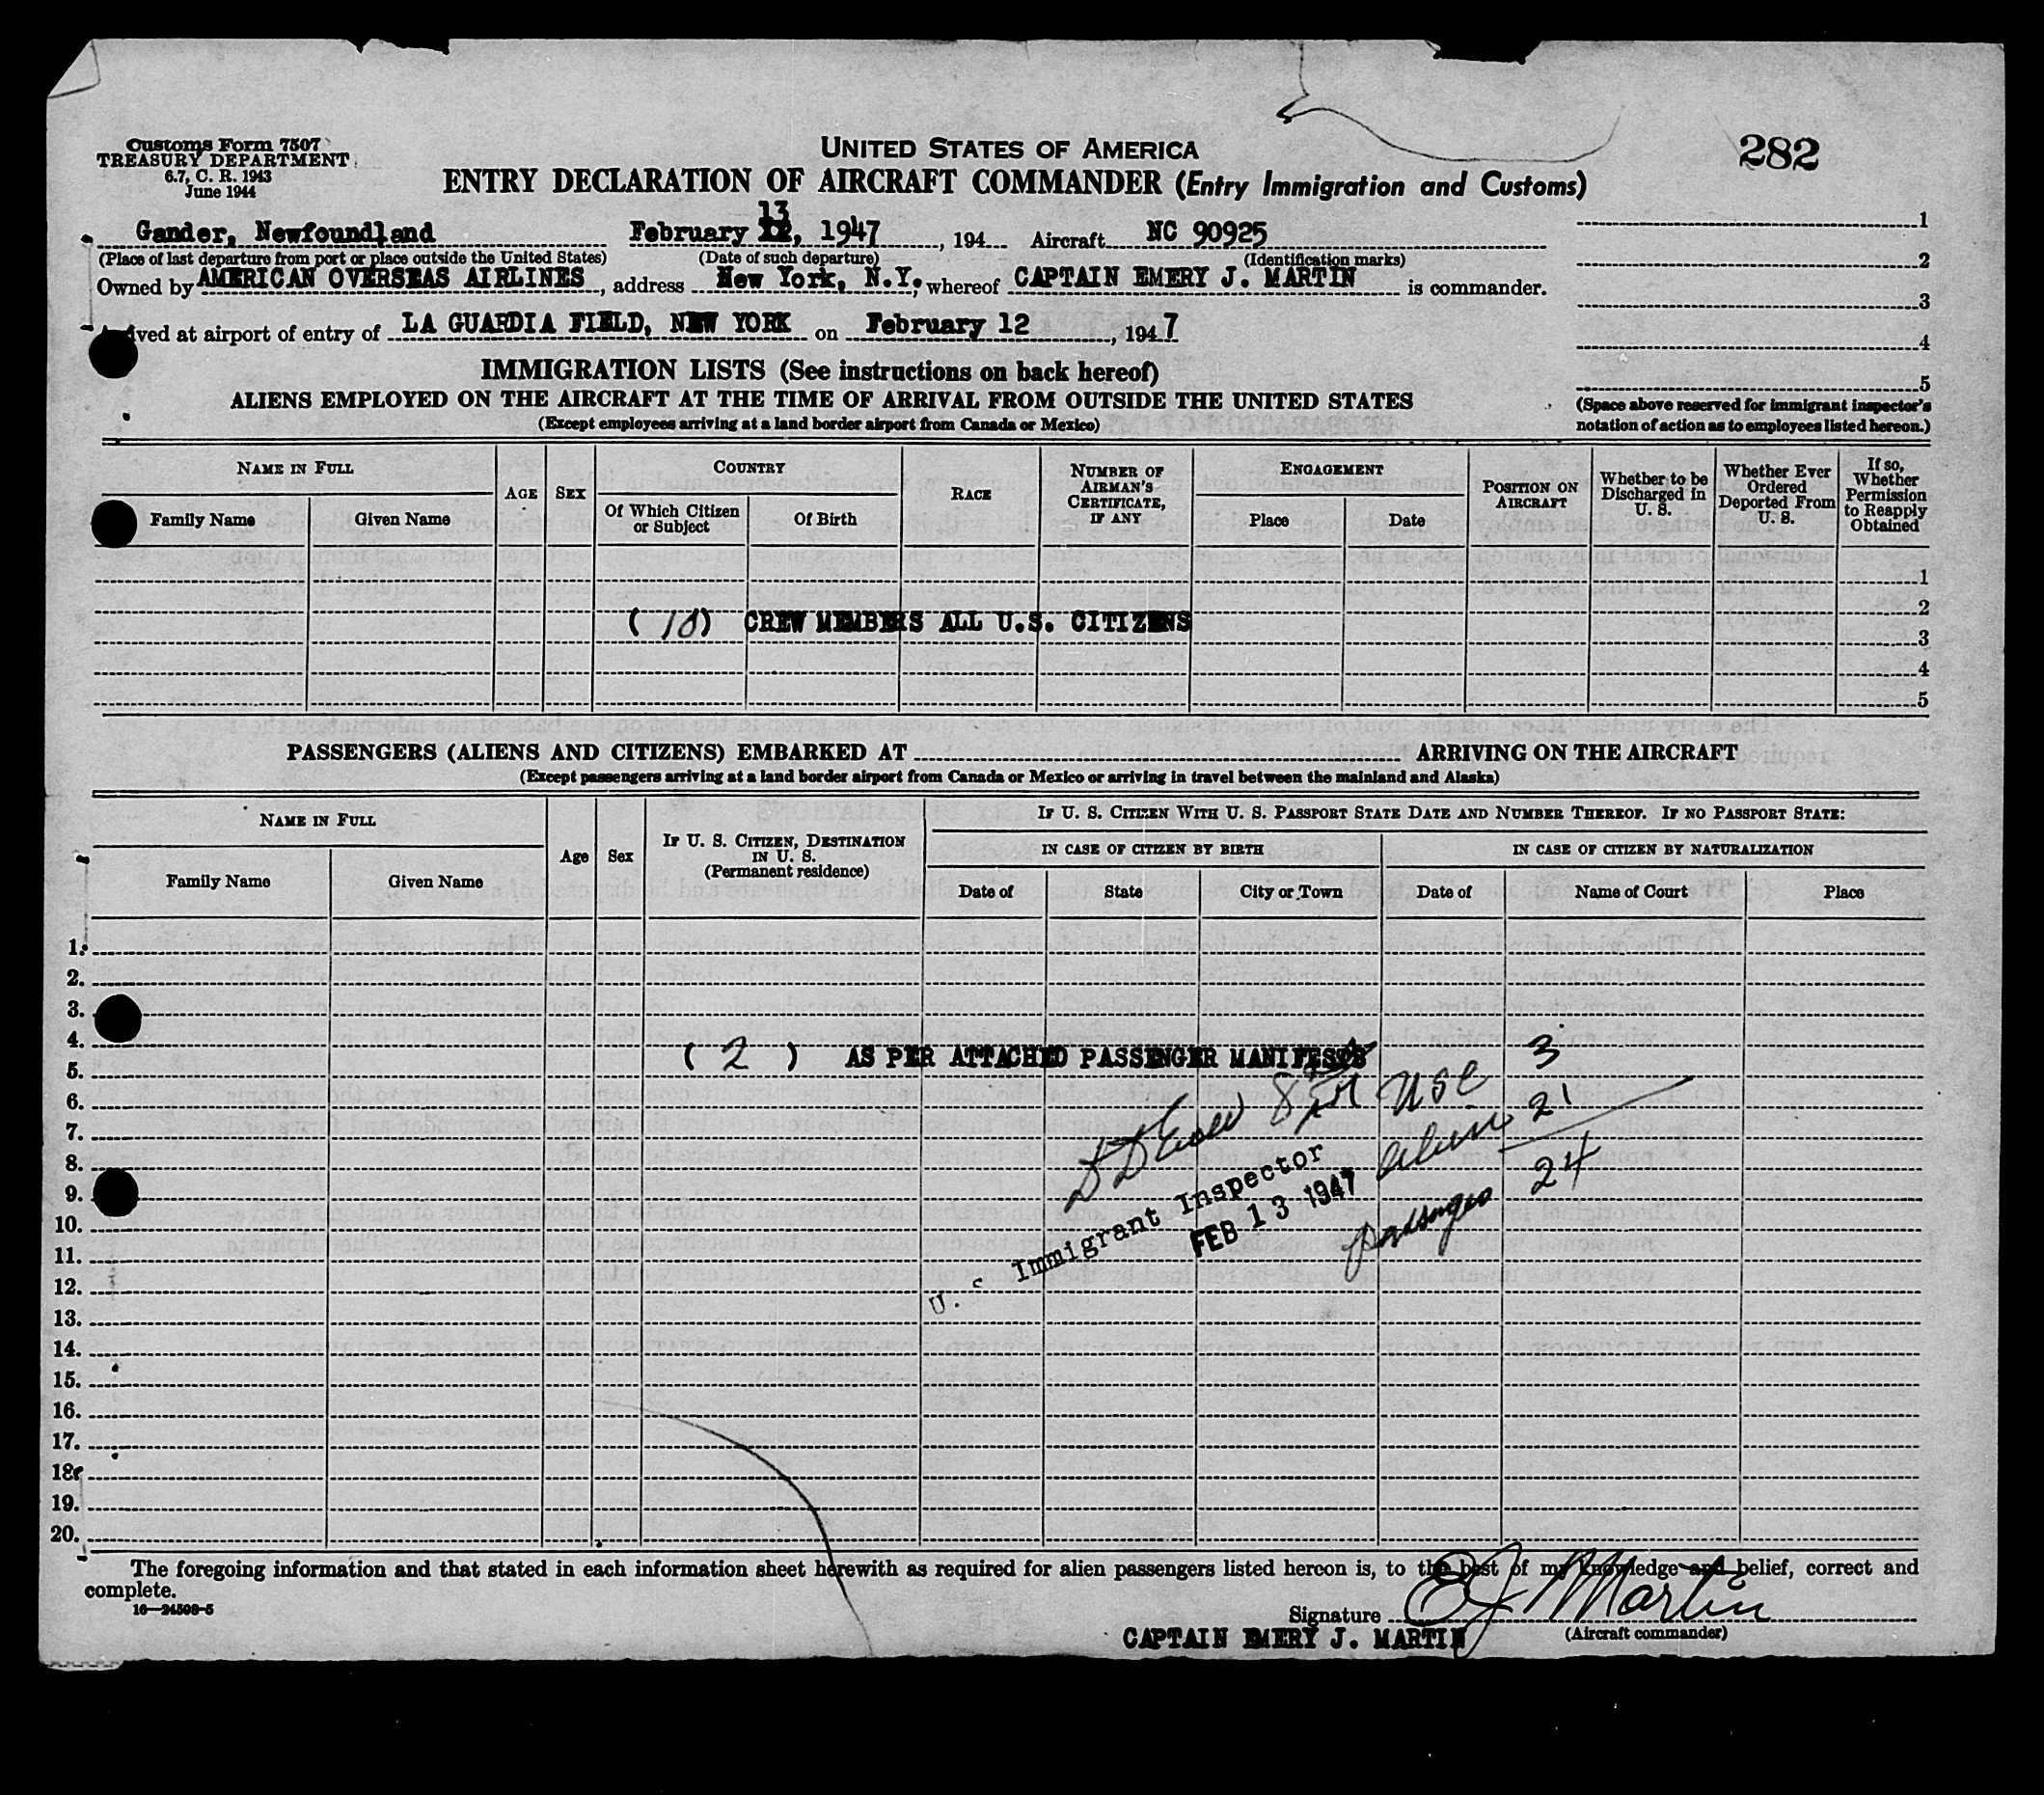 Customs Form 7507
TREASURY DEPARTMENT
6.7, C. R. 1943
June 1944
UNITED STATES OF AMERICA
ENTRY DECLARATION OF AIRCRAFT COMMANDER (Entry Immigration and Customs)
282
13
Gander, Newfoundland February 12, 1947, 194 Aircraft NC 90925
(Place of last departure from port or place outside the United States) (Date of such departure) (Identification marks)
Owned by AMERICAN OVERSEAS AIRLINES, address New York, N.Y., whereof CAPTAIN EMERY J. MARTIN is commander.
ved at airport of entry of LA GUARDIA FIELD, NEW YORK on February 12, 1947
1
2
3
4
5
(Space above reserved for immigrant inspector's
notation of action as to employees listed hereon.)
IMMIGRATION LISTS (See instructions on back hereof)
ALIENS EMPLOYED ON THE AIRCRAFT AT THE TIME OF ARRIVAL FROM OUTSIDE THE UNITED STATES
(Except employees arriving at a land border airport from Canada or Mexico)
NAME IN FULL
Family Name
Given Name
AGE
SEX
COUNTRY
Of Which Citizen
or Subject
Of Birth
RACE
NUMBER OF
AIRMAN'S
CERTIFICATE,
IF ANY
ENGAGEMENT
Place
Date
POSITION ON
AIRCRAFT
Whether to be
Discharged in
U. S.
Whether Ever
Ordered
Deported From
U. S.
If so,
Whether
Permission
to Reapply
Obtained
1
2
(10) CREW MEMBERS ALL U.S. CITIZENS
3
4
5
PASSENGERS (ALIENS AND CITIZENS) EMBARKED AT ARRIVING ON THE AIRCRAFT
(Except passengers arriving at a land border airport from Canada or Mexico or arriving in travel between the mainland and Alaska)
NAME IN FULL
Family Name
Given Name
Age
Sex
IF U. S. CITIZEN, DESTINATION
IN U. S.
(Permanent residence)
IF U. S. CITIZEN WITH U. S. PASSPORT STATE DATE AND NUMBER THEREOF. IF NO PASSPORT STATE:
IN CASE OF CITIZEN BY BIRTH
IN CASE OF CITIZEN BY NATURALIZATION
Date of
State
City or Town
Date of
Name of Court
Place
1.
2.
3.
4.
( 2 ) AS PER ATTACHED PASSENGER MANIFESTS
5.
6.
7.
8.
9.
10.
11.
12.
13.
14.
15.
16.
17.
18.
19.
20.
USC 3
alien 21
passengers 24
U. S Immigrant Inspector
FEB 13 1947
The foregoing information and that stated in each information sheet herewith as required for alien passengers listed hereon is, to the best of my knowledge and belief, correct and
complete.
16—24508-5
Signature E J Martin
(Aircraft commander)
CAPTAIN EMERY J. MARTIN